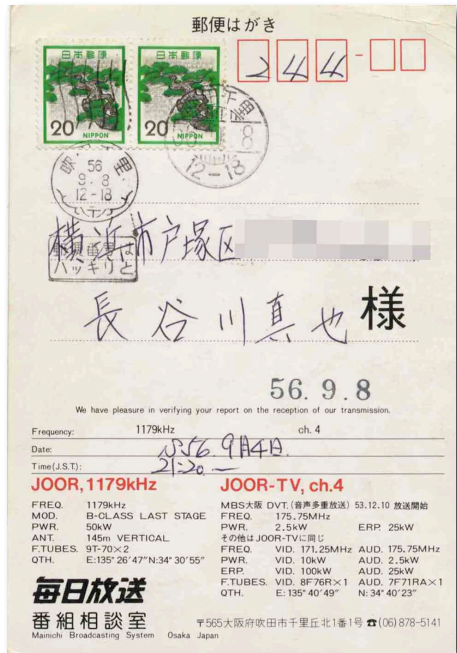 郵便はがき
日本郵便 日本郵便
20 NIPPON 20 NIPPON
244
56
9-8
12-18
8
12-18
横浜市戸塚区
ハッキリと
長谷川真也 様
56.9.8
We have pleasure in verifying your report on the reception of our transmission.
Frequency: 1179kHz ch. 4
Date: S56. 9月4日.
Time(J.S.T): 21:20.—
JOOR,1179kHz
FREQ. 1179kHz
MOD. B-CLASS LAST STAGE
PWR. 50kW
ANT. 145m VERTICAL
F.TUBES. 9T-70×2
QTH. E:135°26'47"N:34°30'55"
JOOR-TV, ch.4
MBS大阪 DVT.(音声多重放送) 53.12.10 放送開始
FREQ. 175.75MHz
PWR. 2.5kW ERP. 25kW
その他はJOOR-TVに同じ
FREQ. VID. 171.25MHz AUD. 175.75MHz
PWR. VID. 10kW AUD. 2.5kW
ERP. VID. 100kW AUD. 25kW
F.TUBES. VID. 8F76R×1 AUD. 7F71RA×1
QTH. E: 135°40'49" N: 34°40'23"
毎日放送
番組相談室
Mainichi Broadcasting System Osaka Japan
〒565大阪府吹田市千里丘北1番1号 ☎(06)878-5141